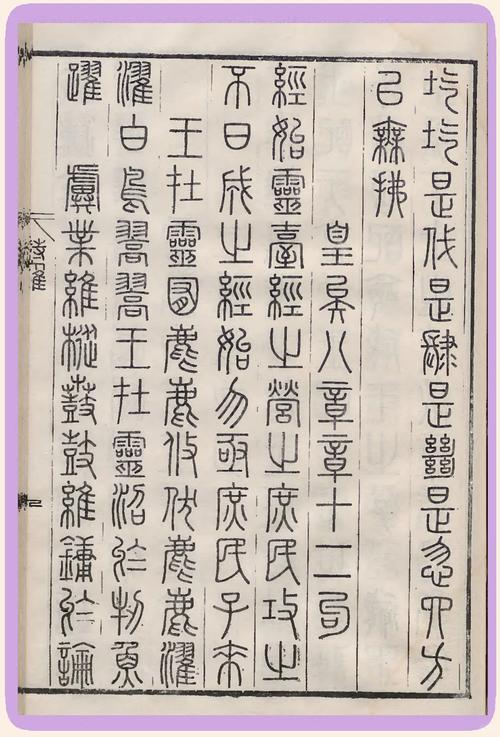 圪圪是伐是肆是𢇍是忽四方
㠯無拂
皇矣八章章十二句
經始靈臺經之營之庶民攻之
不日成之經始勿亟庶民子來
王在靈囿麀鹿攸伏麀鹿濯
濯白鳥翯翯王在靈沼於牣魚
躍 虡業維樅鼖鼓維鏞於論